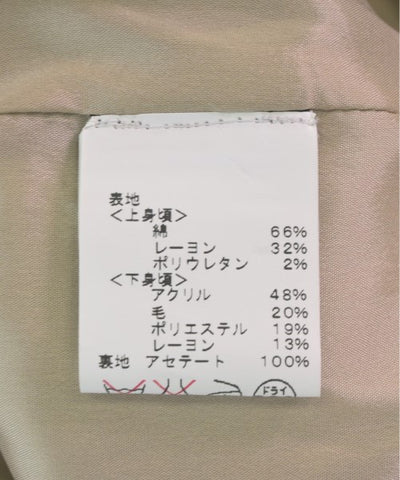 表地
＜上身頃＞
綿 66%
レーヨン 32%
ポリウレタン 2%
＜下身頃＞
アクリル 48%
毛 20%
ポリエステル 19%
レーヨン 13%
裏地 アセテート 100%
ドライ